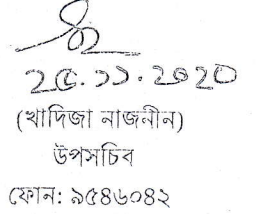 ২৫.১১.২০২০
(খাদিজা নাজনীন)
উপসচিব
ফোন: ৯৫৪৬০৪২